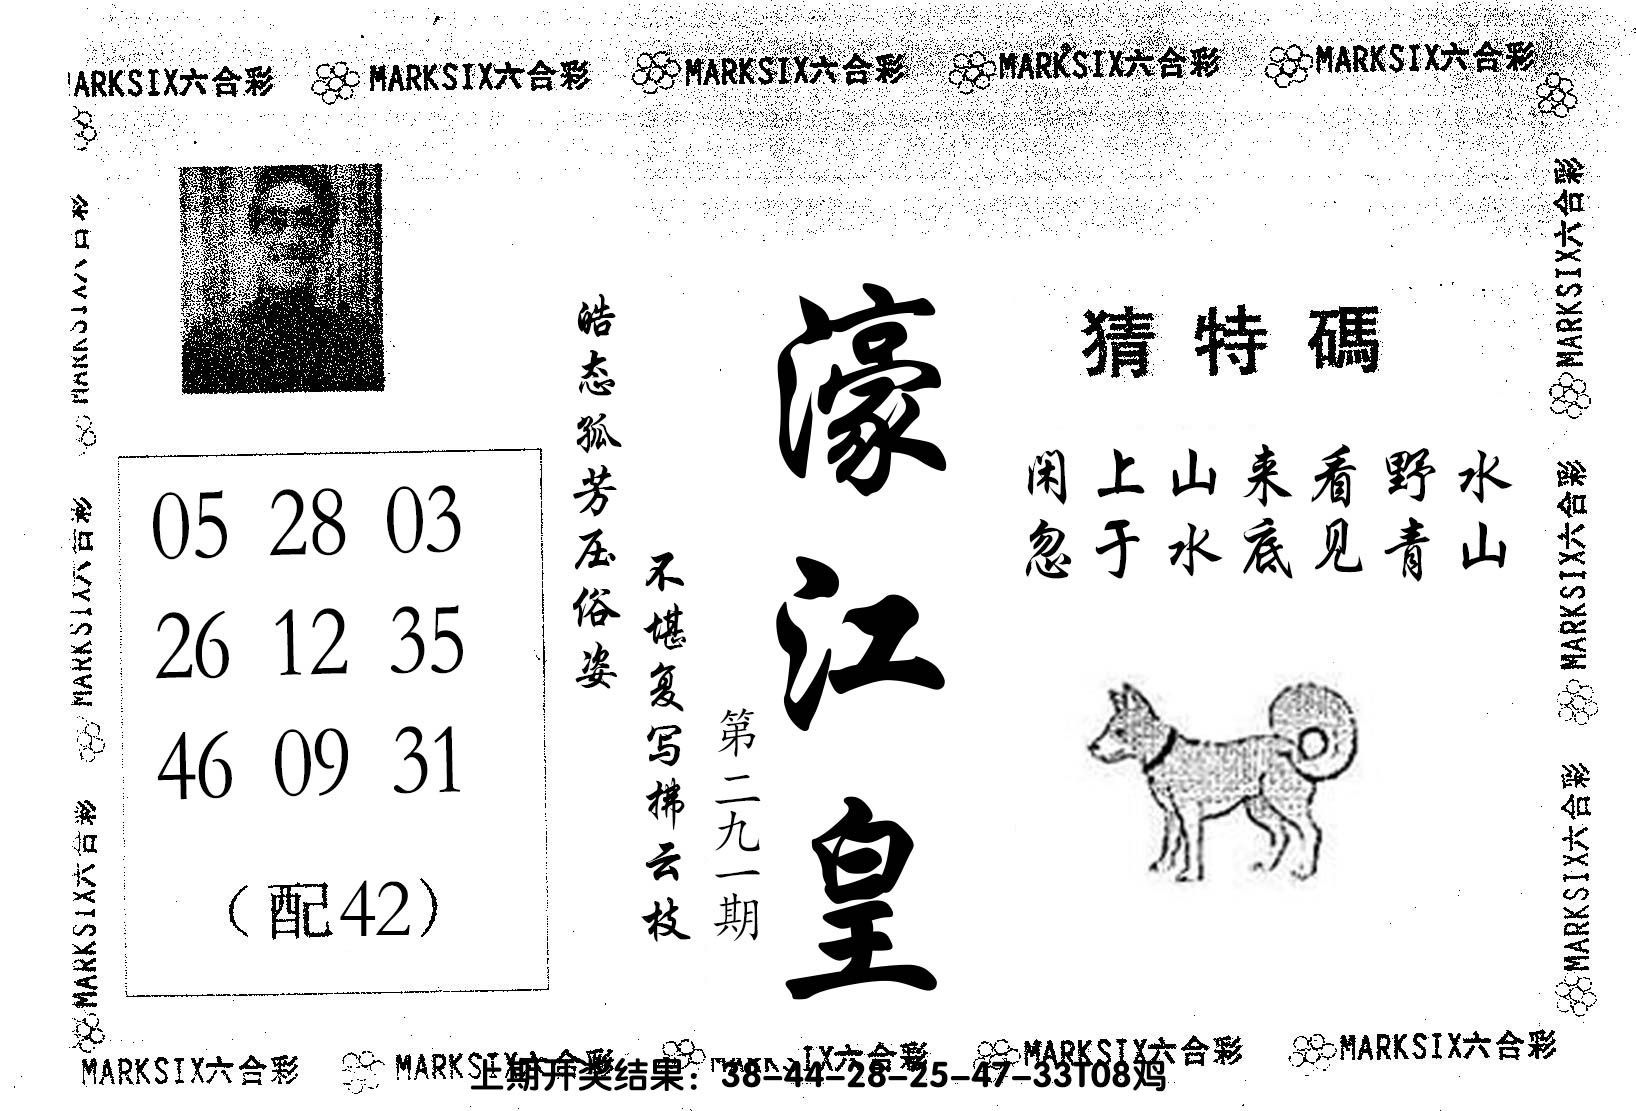 MARKSIX六合彩 MARKSIX六合彩 MARKSIX六合彩 MARKSIX六合彩 MARKSIX六合彩
猜特碼
闲上山来看野水
忽于水底见青山
濠江皇
第二九一期
皓态孤芳压俗姿
不堪复写拂云枝
05 28 03
26 12 35
46 09 31
（配42）
MARKSIX六合彩
MARKSIX六合彩
MARKSIX六合彩
MARKSIX六合彩
MARKSIX六合彩
MARKSIX六合彩
MARKSIX六合彩 MARKSIX六合彩 MARKSIX六合彩 MARKSIX六合彩
上期开奖结果：38-44-28-25-47-33T08鸡